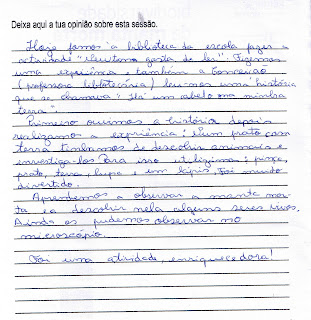 Deixa aqui a tua opinião sobre esta sessão.
Hoje fomos à biblioteca da escola fazer a
actividade "Newton gosta de ler". Fizemos
uma experiência e também a Conceição
(professora bibliotecária) leu-nos uma história
que se chamava: "Há um cabelo na minha
terra".
Primeiro ouvimos a história depois
realizamos a experiência: Num prato com
terra tínhamos de descobrir animais e
investiga-los. Para isso utilizámos: pinça,
prato, terra, lupa e um lápis. Foi muito
divertido.
Aprendemos a observar a manta mor-
ta e a descobrir nela alguns seres vivos.
Ainda os pudemos observar no
microscópio.
Foi uma atividade, enriquecedora!